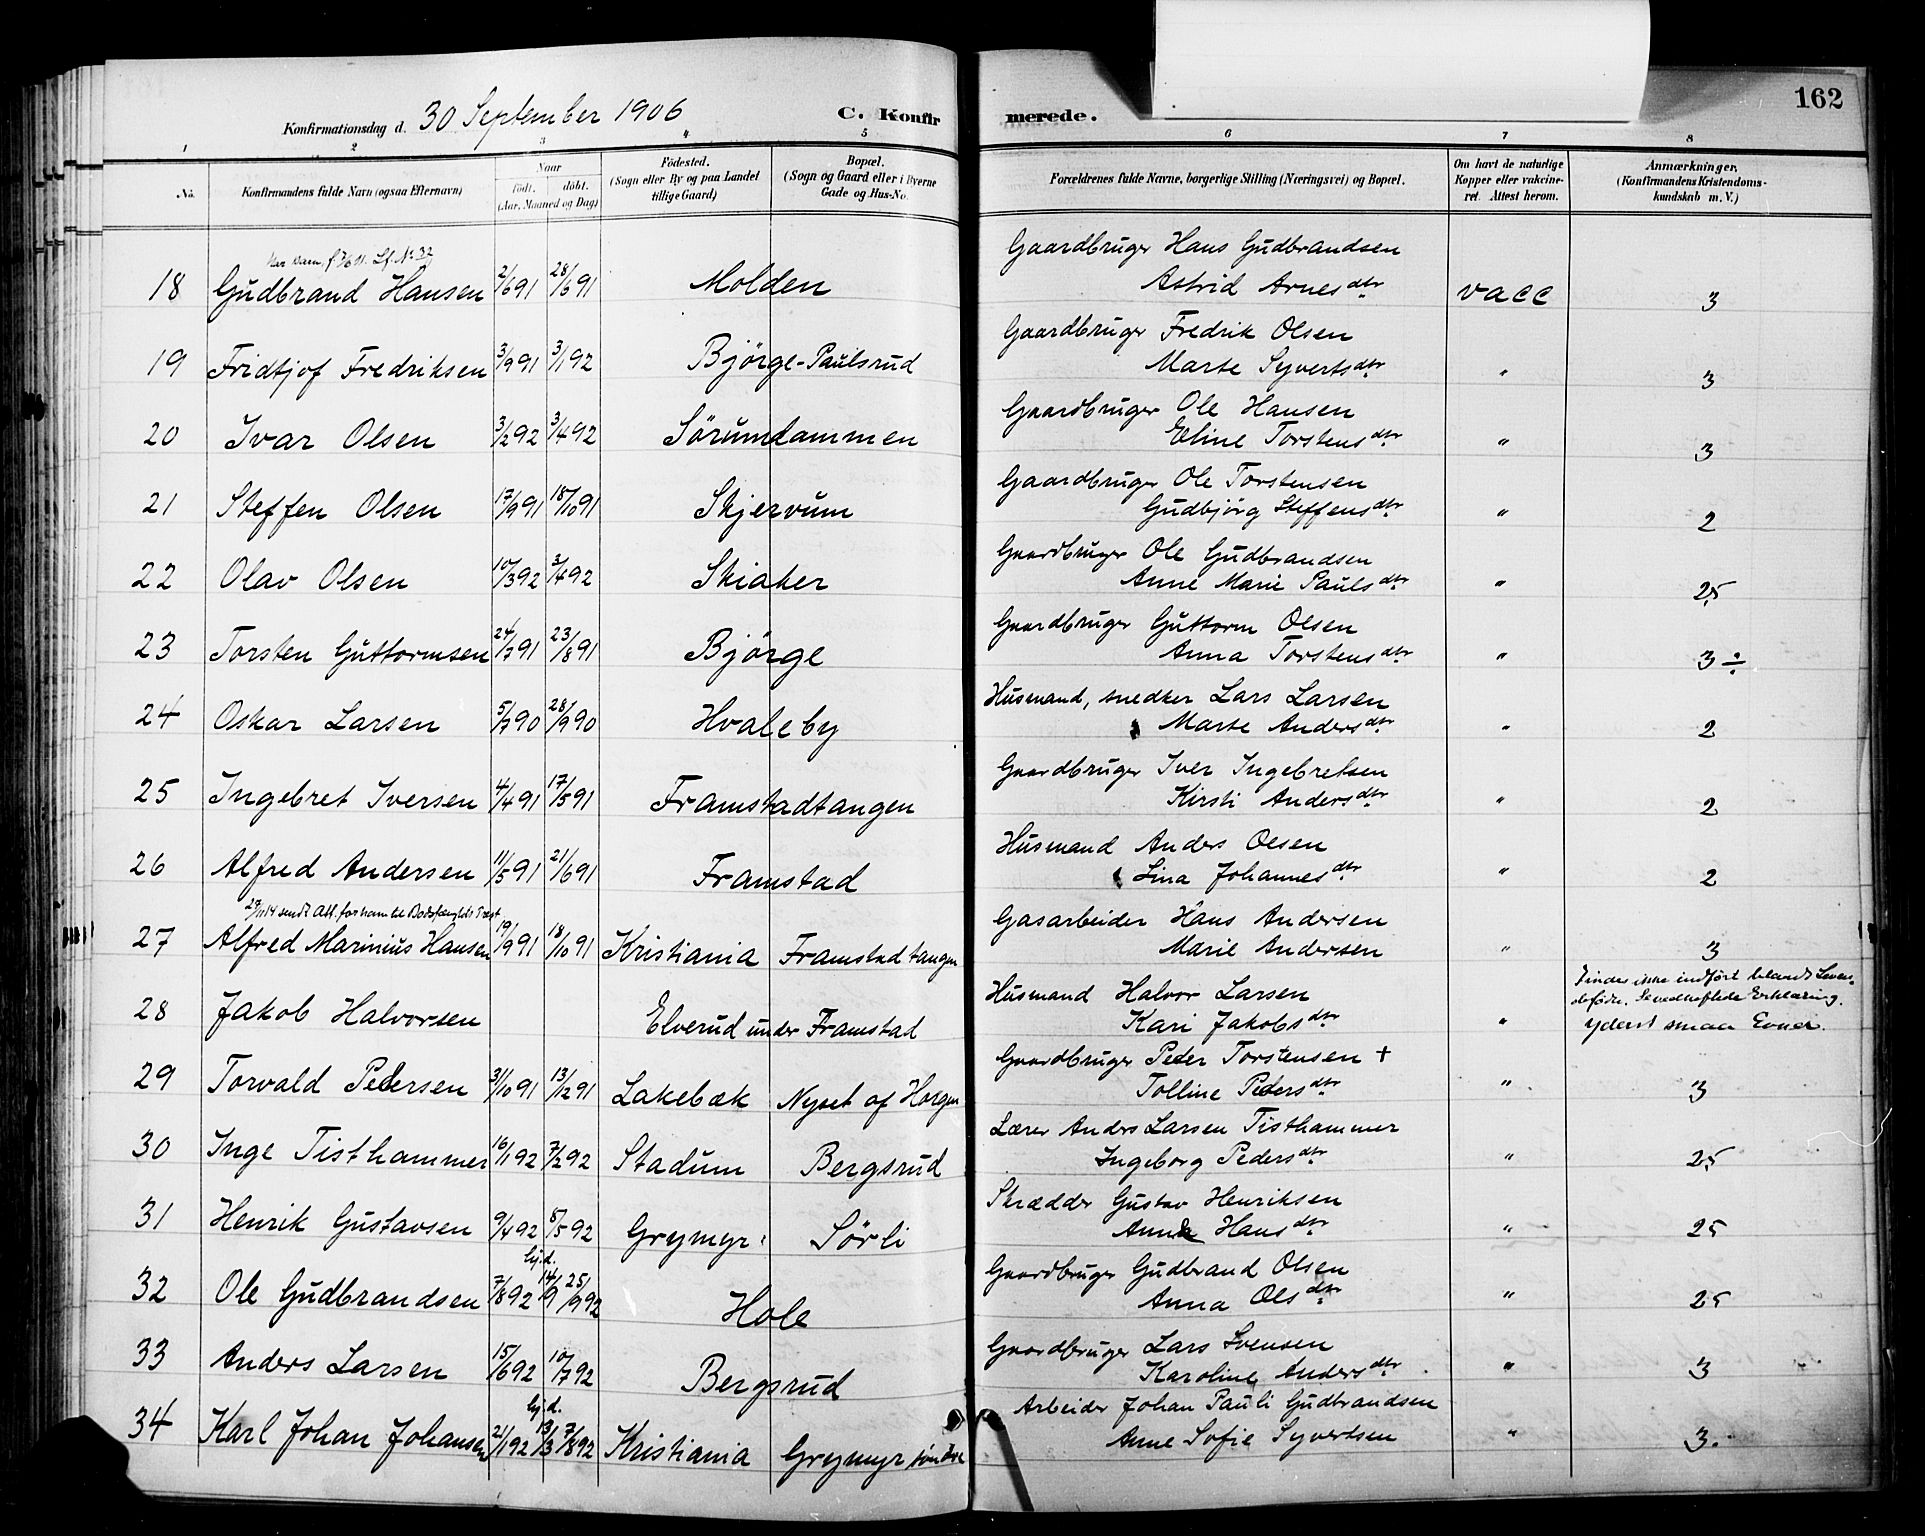 162
Konfirmationsdag d. 30 September 1906 C. Konfirmerede.
1 2 3 4 5 6 7 8
No. Konfirmandens fulde Navn (ogsaa Efternavn) Naar født. døbt. (Aar, Maaned og Dag) Fødested. (Sogn eller By og paa Landet tillige Gaard) Bopæl. (Sogn og Gaard eller i Byerne Gade og Hus-No. Forældrenes fulde Navne, borgerlige Stilling (Næringsvei) og Bopæl. Om havt de naturlige Kopper eller vakcineret. Attest herom. Anmærkninger, (Konfirmandens Kristendomskundskab m. V.)
Gaardbruger Hans Gudbrandsen
18 Gudbrand Hansen 2/6 91 28/6 91 Molden Astrid Arnesdtr. vacc 3
Gaardbruger Fredrik Olsen
19 Fridtjof Fredriksen 3/9 91 3/1 92 Bjørge-Paulsrud Marte Syvertsdtr. " 3
Gaardbruger Ole Hansen
20 Ivar Olsen 3/2 92 3/4 92 Sørumdammen Eline Torstensdtr. " 3
Gaardbruger Ole Torstensen
21 Steffen Olsen 17/9 91 18/10 91 Skjervum Gudbjørg Steffensdtr. " 2
Gaardbruger Ole Gudbrandsen
22 Olav Olsen 10/3 92 3/4 92 Skiaker Anne Marie Paulsdtr. " 2,5
Gaardbruger Guttorm Olsen
23 Torsten Guttormsen 24/7 91 23/8 91 Bjørge Anna Torstensdtr. " 3 ÷
Husmand, snedker Lars Larsen
24 Oskar Larsen 5/7 90 28/9 90 Hvaleby Marte Andersdtr. " 2
Gaardbruger Iver Ingebretsen
25 Ingebret Iversen 4/4 91 17/5 91 Framstadtangen Kirsti Andersdtr. " 2
Husmand Anders Olsen
26 Alfred Andersen 11/5 91 21/6 91 Framstad Lina Johannesdtr. " 2
sendt Att. for ham til
Gasarbeider Hans Andersen
27 Alfred Marinius Hansen 19/9 91 18/10 91 Kristiania Framstadtangen Marie Andersen " 3
Findes ikke indført blandt Levendefødte. Se vedheftede Erklæring.
Husmand Halvor Larsen
28 Jakob Halvorsen Elverud under Framstad Kari Jakobsdtr. " yderst smaa Evner.
Gaardbruger Peder Torstensen +
29 Torvald Pedersen 31/10 91 13/12 91 Lakebæk Nyset af Horgen Tolline Pedersdtr. " 3
Lærer Anders Larsen Tisthammer
30 Inge Tisthammer 16/1 92 7/2 92 Stadum Bergsrud Ingeborg Pedersdtr. " 2,5
Skrædder Gustav Henriksen
31 Henrik Gustavsen 9/4 92 8/5 92 Grymyr Sørli Anna Hansdtr. " 2,5
hj.d.
Gaardbruger Gudbrand Olsen
32 Ole Gudbrandsen 7/8 92 14/9 25/9 92 Hole Anna Olsdtr. " 2,5
Gaardbruger Lars Svensen
33 Anders Larsen 15/6 92 10/7 92 Bergsrud Karoline Andersdtr. " 3
hj.d.
Arbeider Johan Pauli Gudbrandsen
34 Karl Johan Johansen 21/1 92 13/3 7/8 92 Kristiania Grymyr søndre Anne Sofie Syvertsen " 3.